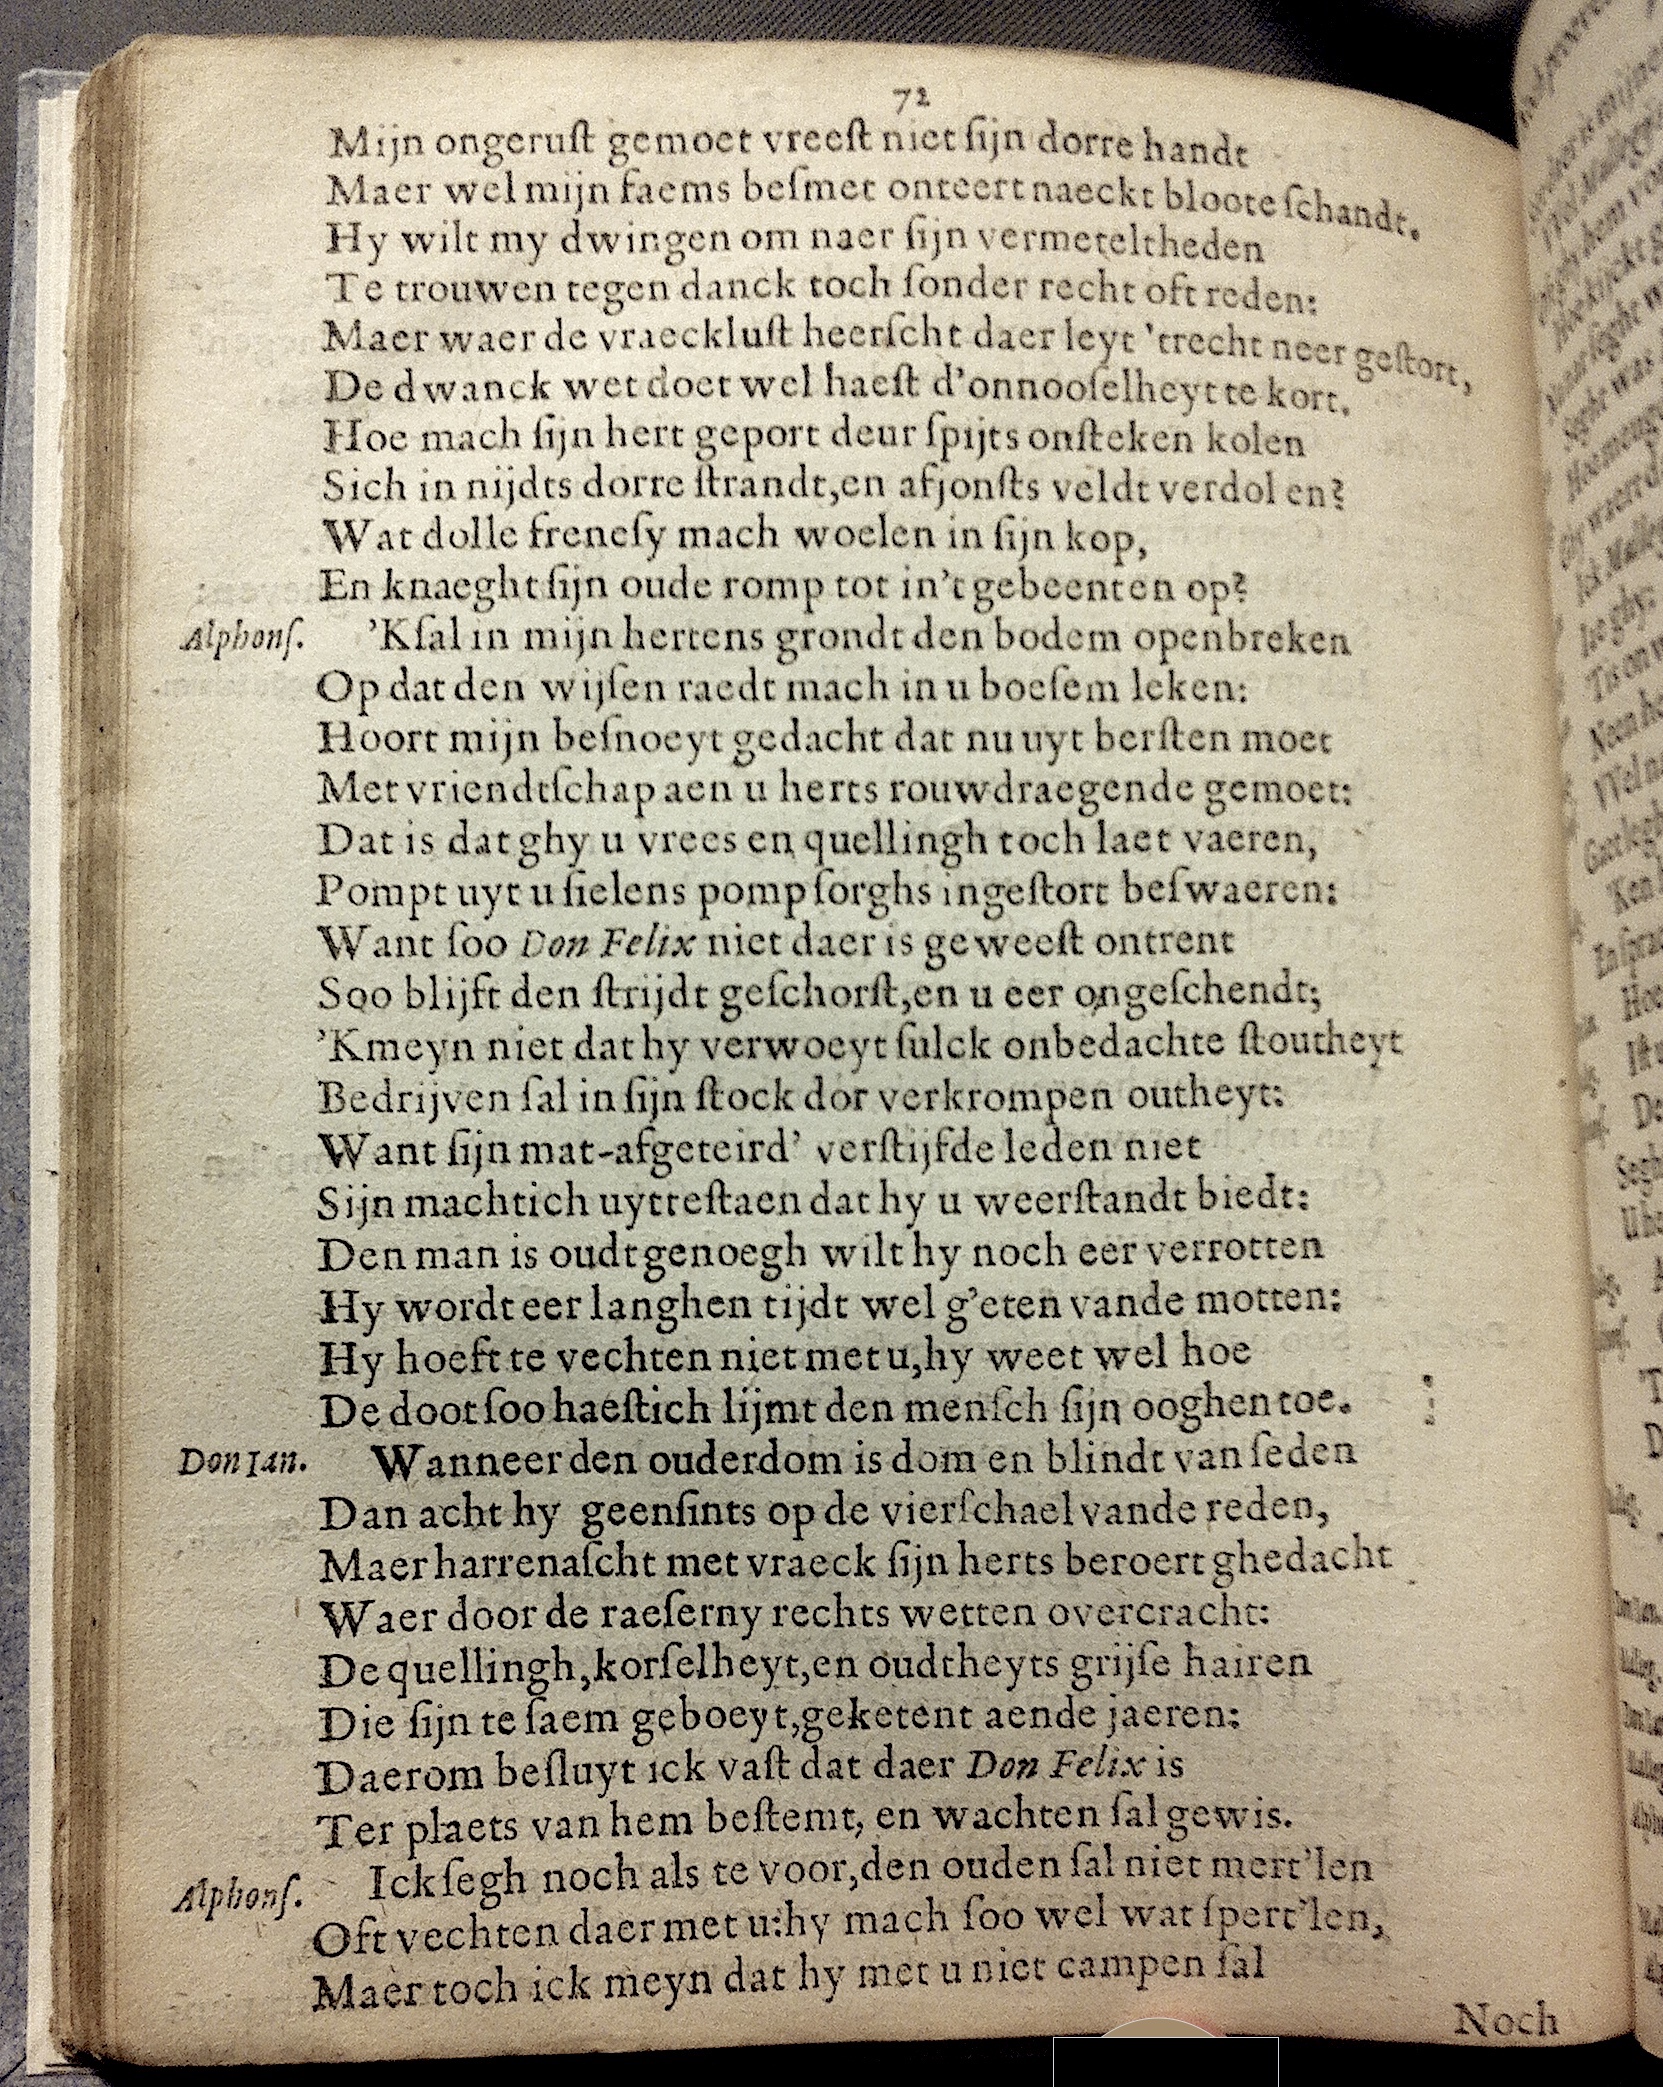 72
Mijn ongeruſt gemoet vreeſt niet ſijn dorre handt
Maer wel mijn faems beſmet onteert naeckt bloote ſchandt.
Hy wilt my dwingen om naer ſijn vermeteltheden
Te trouwen tegen danck toch ſonder recht oft reden:
Maer waer de vraeckluſt heerſcht daer leyt 'trecht neer geſtort,
De dwanck wet doet wel haeſt d'onnooſelheyt te kort.
Hoe mach ſijn hert geport deur ſpijts onſteken kolen
Sich in nijdts dorre ſtrandt,en afjonſts veldt verdolen?
Wat dolle freneſy mach woelen in ſijn kop,
En knaeght ſijn oude romp tot in't gebeenten op?
Alphonſ. 'Kſal in mijn hertens grondt den bodem openbreken
Op dat den wijſen raedt mach in u boeſem leken:
Hoort mijn beſnoeyt gedacht dat nu uyt berſten moet
Met vriendtſchap aen u herts rouwdraegende gemoet:
Dat is dat ghy u vrees en quellingh toch laet vaeren,
Pompt uyt u ſielens pomp ſorghs ingeſtort beſwaeren:
Want ſoo Don Felix niet daer is geweeſt ontrent
Soo blijft den ſtrijdt geſchorſt,en u eer ongeſchendt;
'Kmeyn niet dat hy verwoeyt ſulck onbedachte ſtoutheyt
Bedrijven ſal in ſijn ſtock dor verkrompen outheyt:
Want ſijn mat-afgeteird' verſtijfde leden niet
Sijn machtich uytteſtaen dat hy u weerſtandt biedt:
Den man is oudt genoegh wilt hy noch eer verrotten
Hy wordt eer langhen tijdt wel g'eten vande motten:
Hy hoeft te vechten niet met u,hy weet wel hoe
De doot ſoo haeſtich lijmt den menſch ſijn ooghen toe.
Don Ian. Wanneer den ouderdom is dom en blindt van ſeden
Dan acht hy geenſints op de vierſchael vande reden,
Maer harrenaſcht met vraeck ſijn herts beroert ghedacht
Waer door de raeſerny rechts wetten overcracht:
De quellingh,korſelheyt,en oudtheyts grijſe hairen
Die ſijn te ſaem geboeyt,geketent aende jaeren:
Daerom beſluyt ick vaſt dat daer Don Felix is
Ter plaets van hem beſtemt, en wachten ſal gewis.
Alphonſ. Ick ſegh noch als te voor,den ouden ſal niet mert'len
Oft vechten daer met u:hy mach ſoo wel wat ſpert'len,
Maer toch ick meyn dat hy met u niet campen ſal
Noch